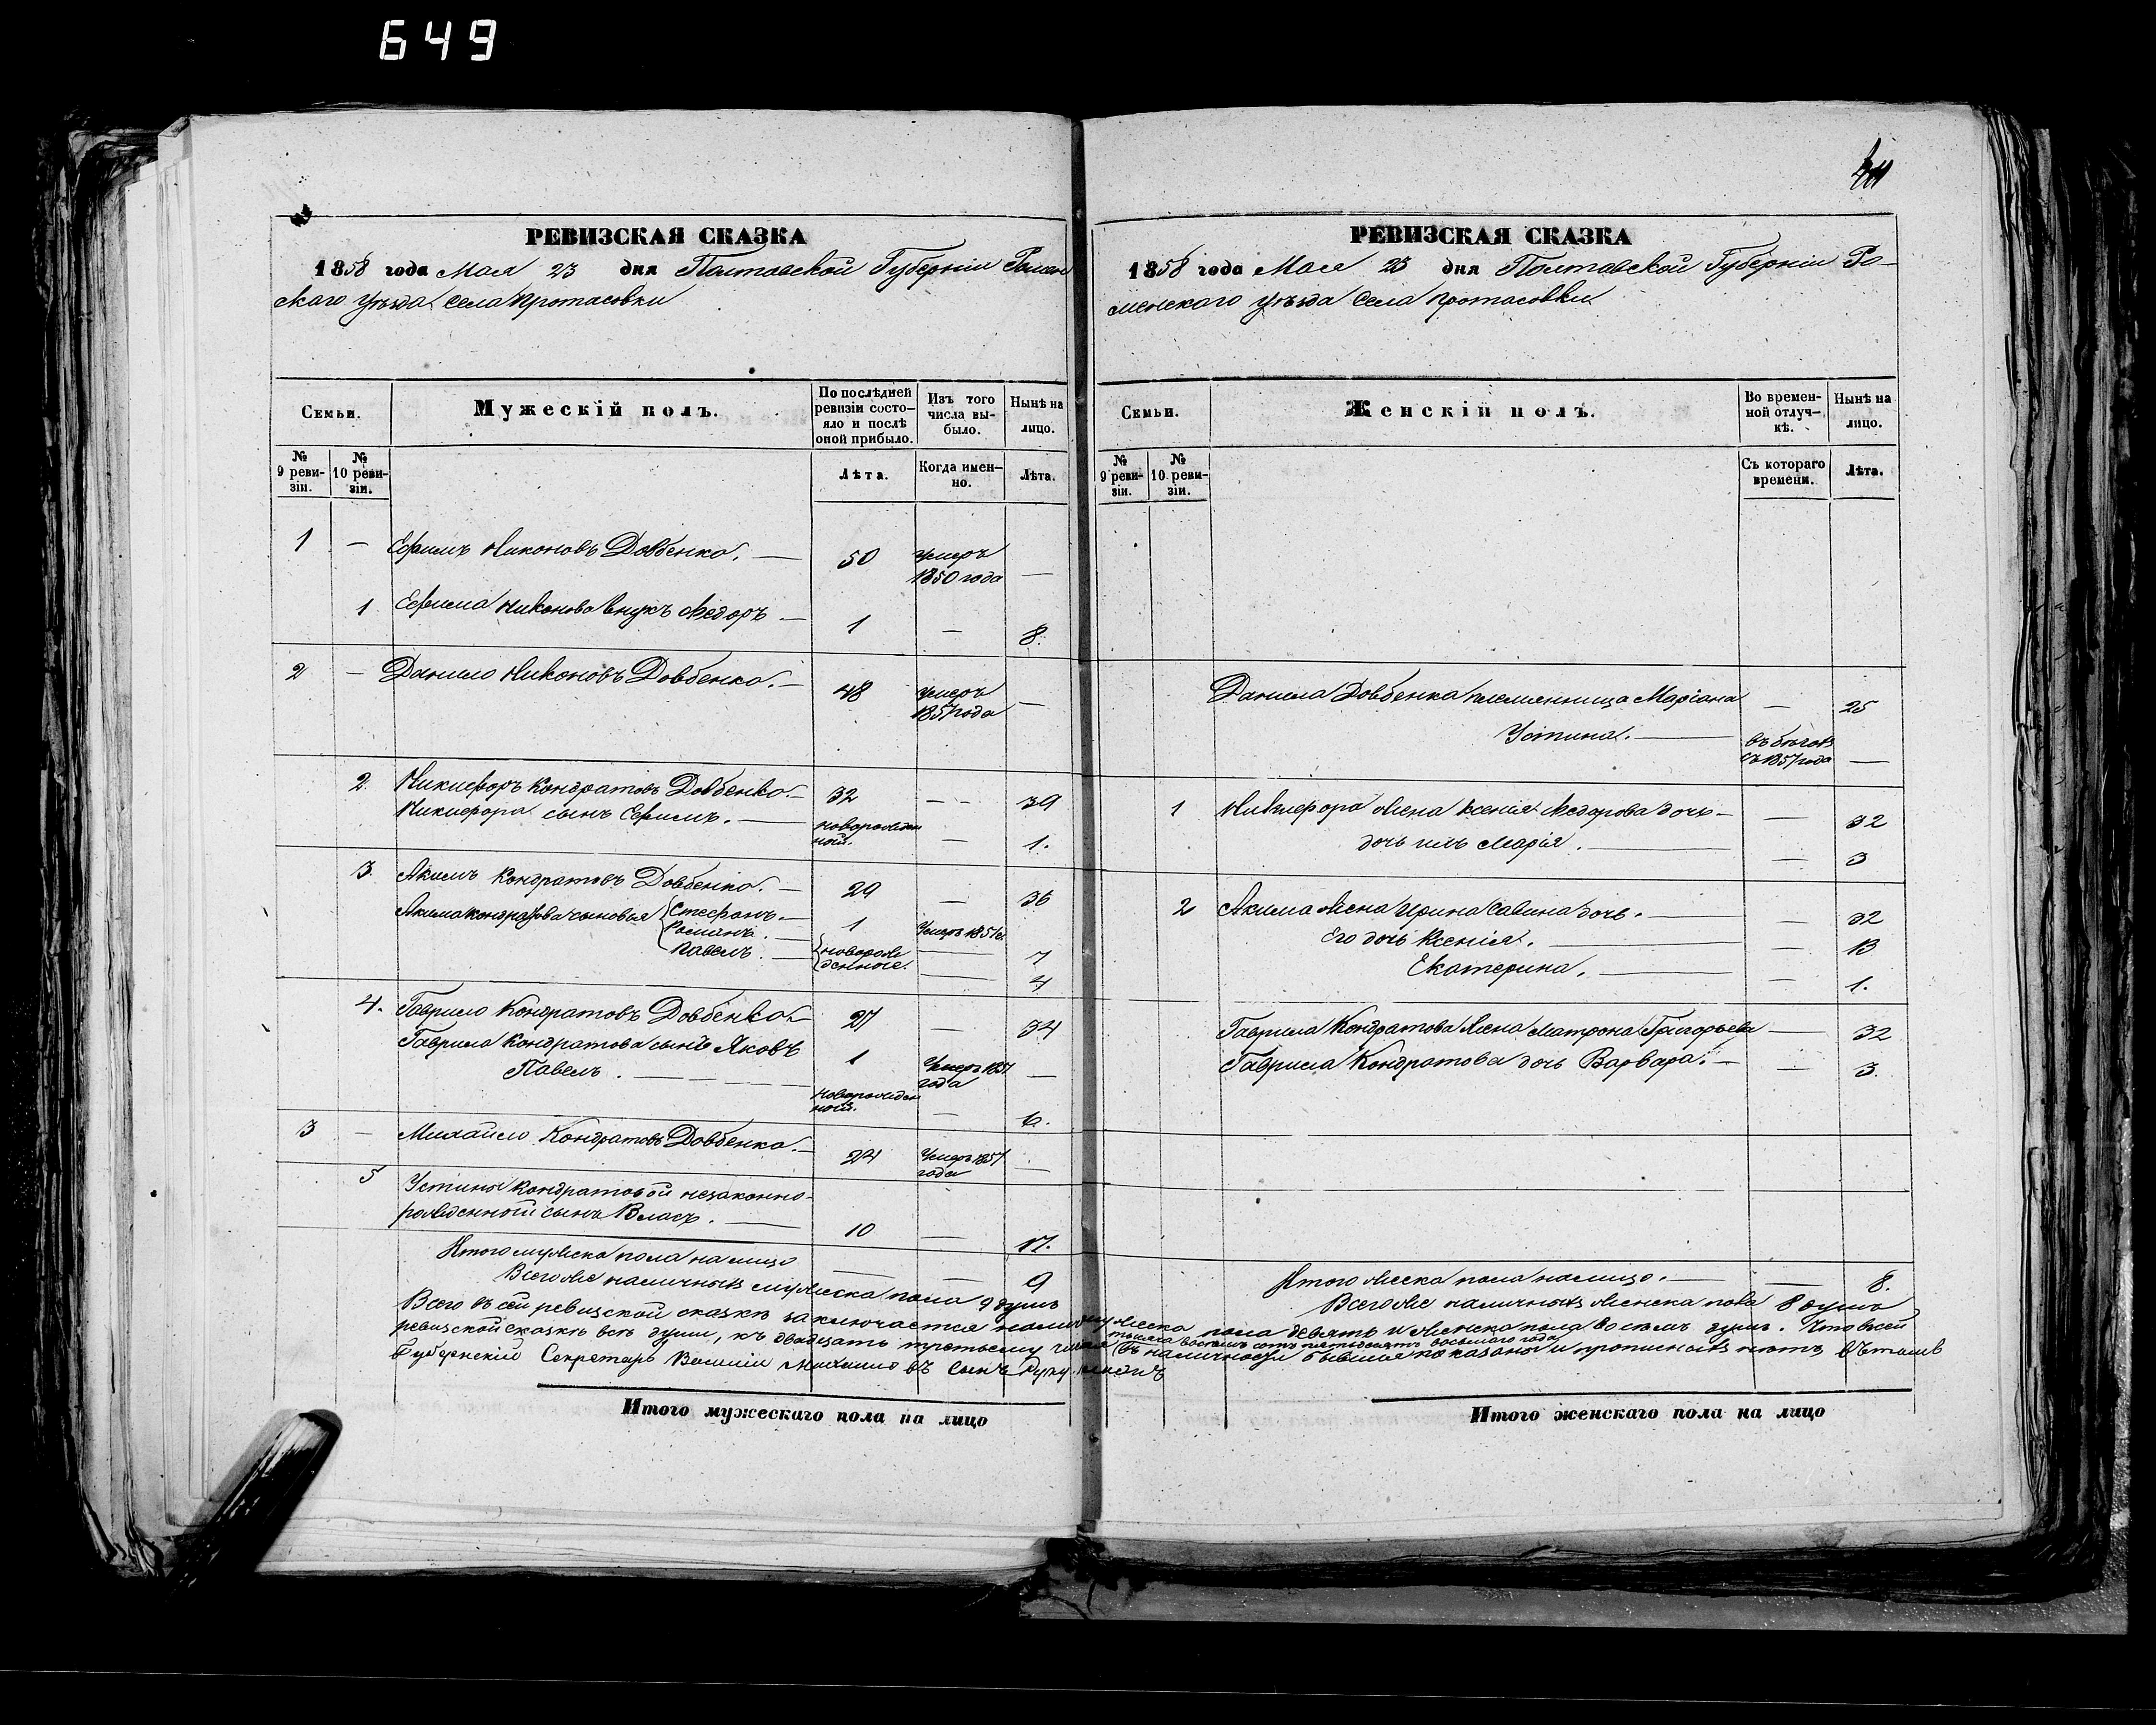 649
РЕВИЗСКАЯ СКАЗКА
1858 года Мая 23 дня Полтавской Губерніи Ромен
скаго уѣзда села Протасовки
Семьи.
Мужескій полъ.
По послѣдней
ревизіи состо-
яло и послѣ
оной прибыло.
Изъ того
числа вы-
было.
Нынѣ на
лицо.
№
9 реви-
зіи.
№
10 реви-
зіи.
Лѣта.
Когда имен-
но.
Лѣта.
1 — Ефимъ Никоновъ Довбенко. — 50 умеръ
1850 года —
1 Ефима Никонова внукъ Ѳедоръ — 1 — 8.
2 — Данило Никоновъ Довбенко. — 48 умеръ
1857 года —
2. Никифоръ Кондратовъ Довбенко. — 32 — — 39
Никифора сынъ Ефимъ. — новорожден
ной. — 1.
3. Акимъ Кондратовъ Довбенко. — 29 — 36
Акима Кондратова сыновья Стефанъ. — 1 Умеръ 1851
Романъ. — новорож — 7
Павелъ. — денные. — 4
4. Гаврило Кондратовъ Довбенко — 27 — 34
Гаврила Кондратова сынъ Яковъ 1 Умеръ 1857
года —
Павелъ. — новорожден
ной. — 6.
3 — Михайло Кондратовъ Довбенко. — 24 Умеръ 1857
года —
5 Устиньи Кондратовой незаконно-
рожденной сынъ Власъ. — 10 — 17.
Итого мужеска пола на лицо — — 9
Всего же наличныхъ мужеска пола 9 душъ
РЕВИЗСКАЯ СКАЗКА
1858 года Мая 23 дня Полтавской Губерніи Ро-
менскаго уѣзда села Протасовки
Семьи.
Женскій полъ.
Во времен-
ной отлуч-
кѣ.
Нынѣ на
лицо.
№
9 реви-
зіи.
№
10 реви-
зіи.
Съ котораго
времени.
Лѣта.
Данила Довбенка племянница Маріана — 25
Устина. — въ бѣгахъ
съ 1857 года —
1 Никифора жена Ксенія Ѳедорова дочь — — 32
дочь ихъ Марія. — — 3
2 Акима жена Ирина Савина дочь. — — 32
Его дочь Ксенія. — — 13
Екатерина. — — 1.
Гаврила Кондратова жена Матрона Григорьева — 32
Гаврила Кондратова дочь Варвара. — — 3.
Итого женска пола на лицо. — — 8.
Всего же наличныхъ женска пола 8 душъ
Всего въ сей ревизской сказкѣ заключается мужеска пола девять и женска пола восемъ душъ. Что въ сей
ревизской сказкѣ всѣ души, къ двадцать третьему числа
тысяча восемь сотъ пятьдесятъ восьмаго года
въ наличности бывшія показаны и прописныхъ нѣтъ въ томъ
Губернскій Секретарь
Итого мужескаго пола на лицо
Итого женскаго пола на лицо